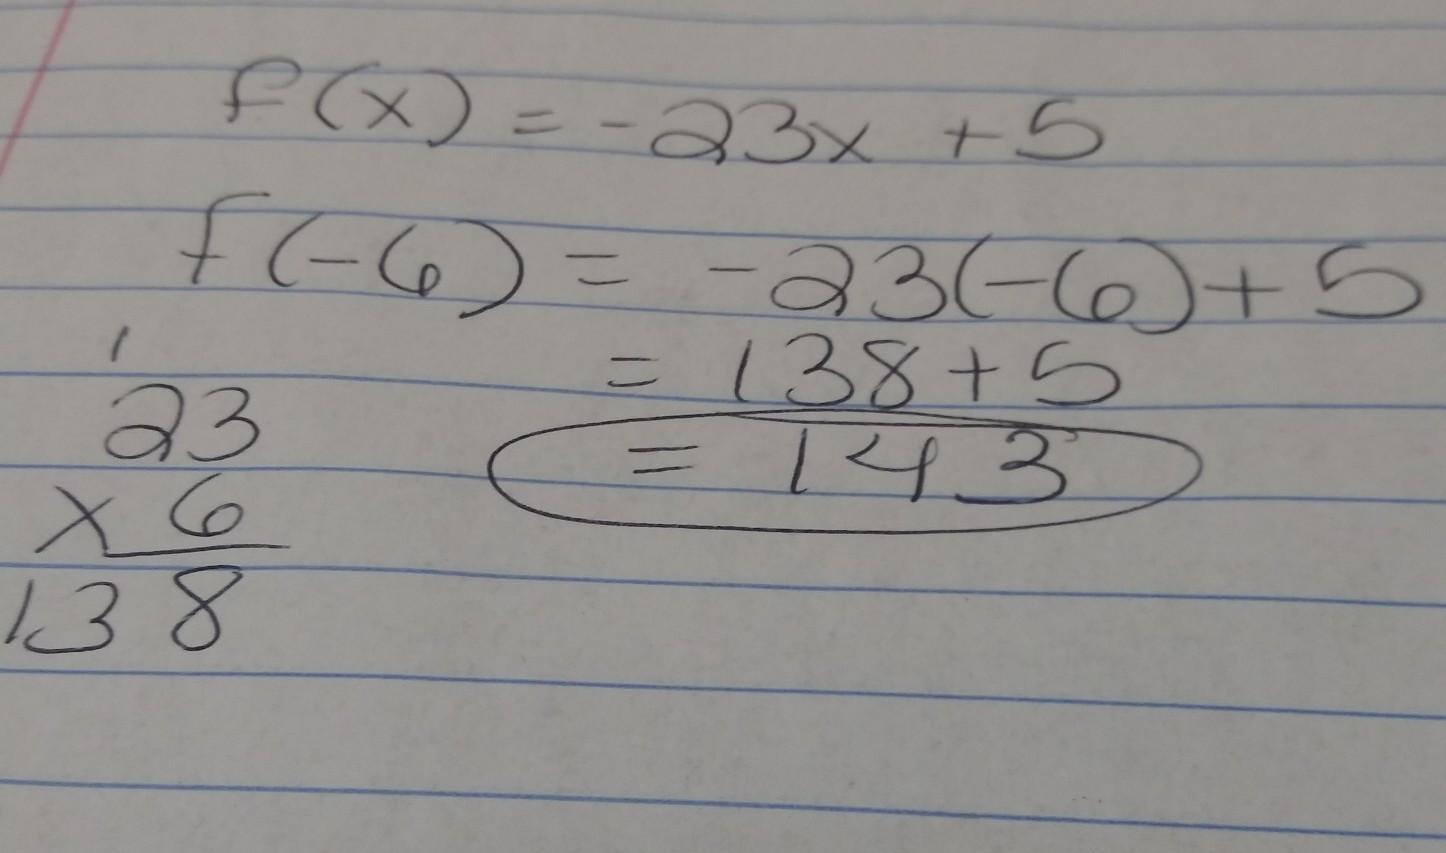 f(x) = -23x + 5
f(-6) = -23(-6) + 5
= 138 + 5
= 143
1
23
x 6
138